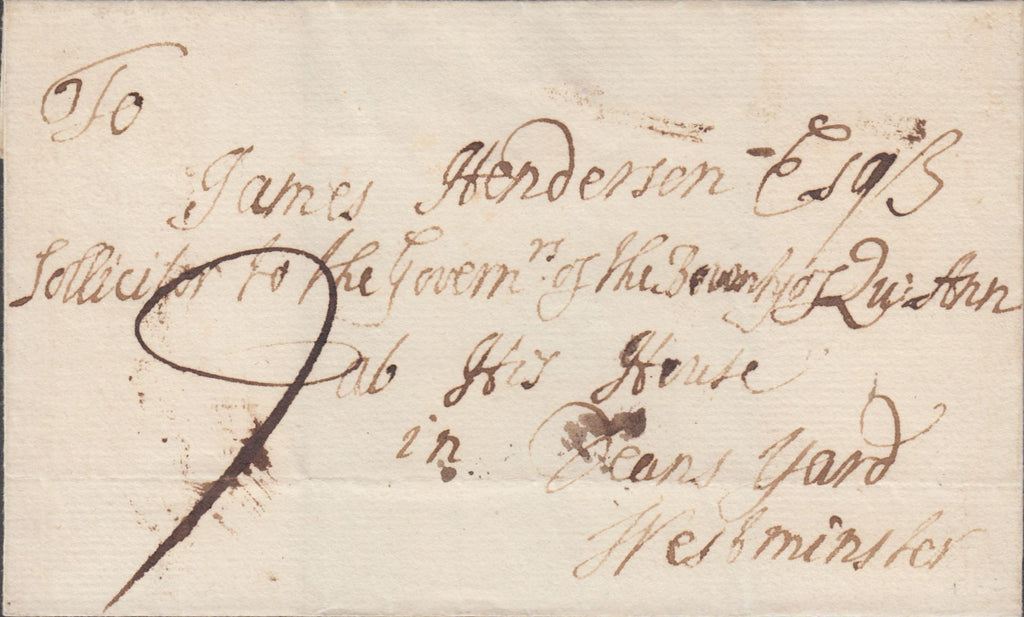 To
James Henderson Esqr
Sollicitor to the Govern.rs of the Bounty of Qu: Ann
att His House
in Deans Yard
Westminster